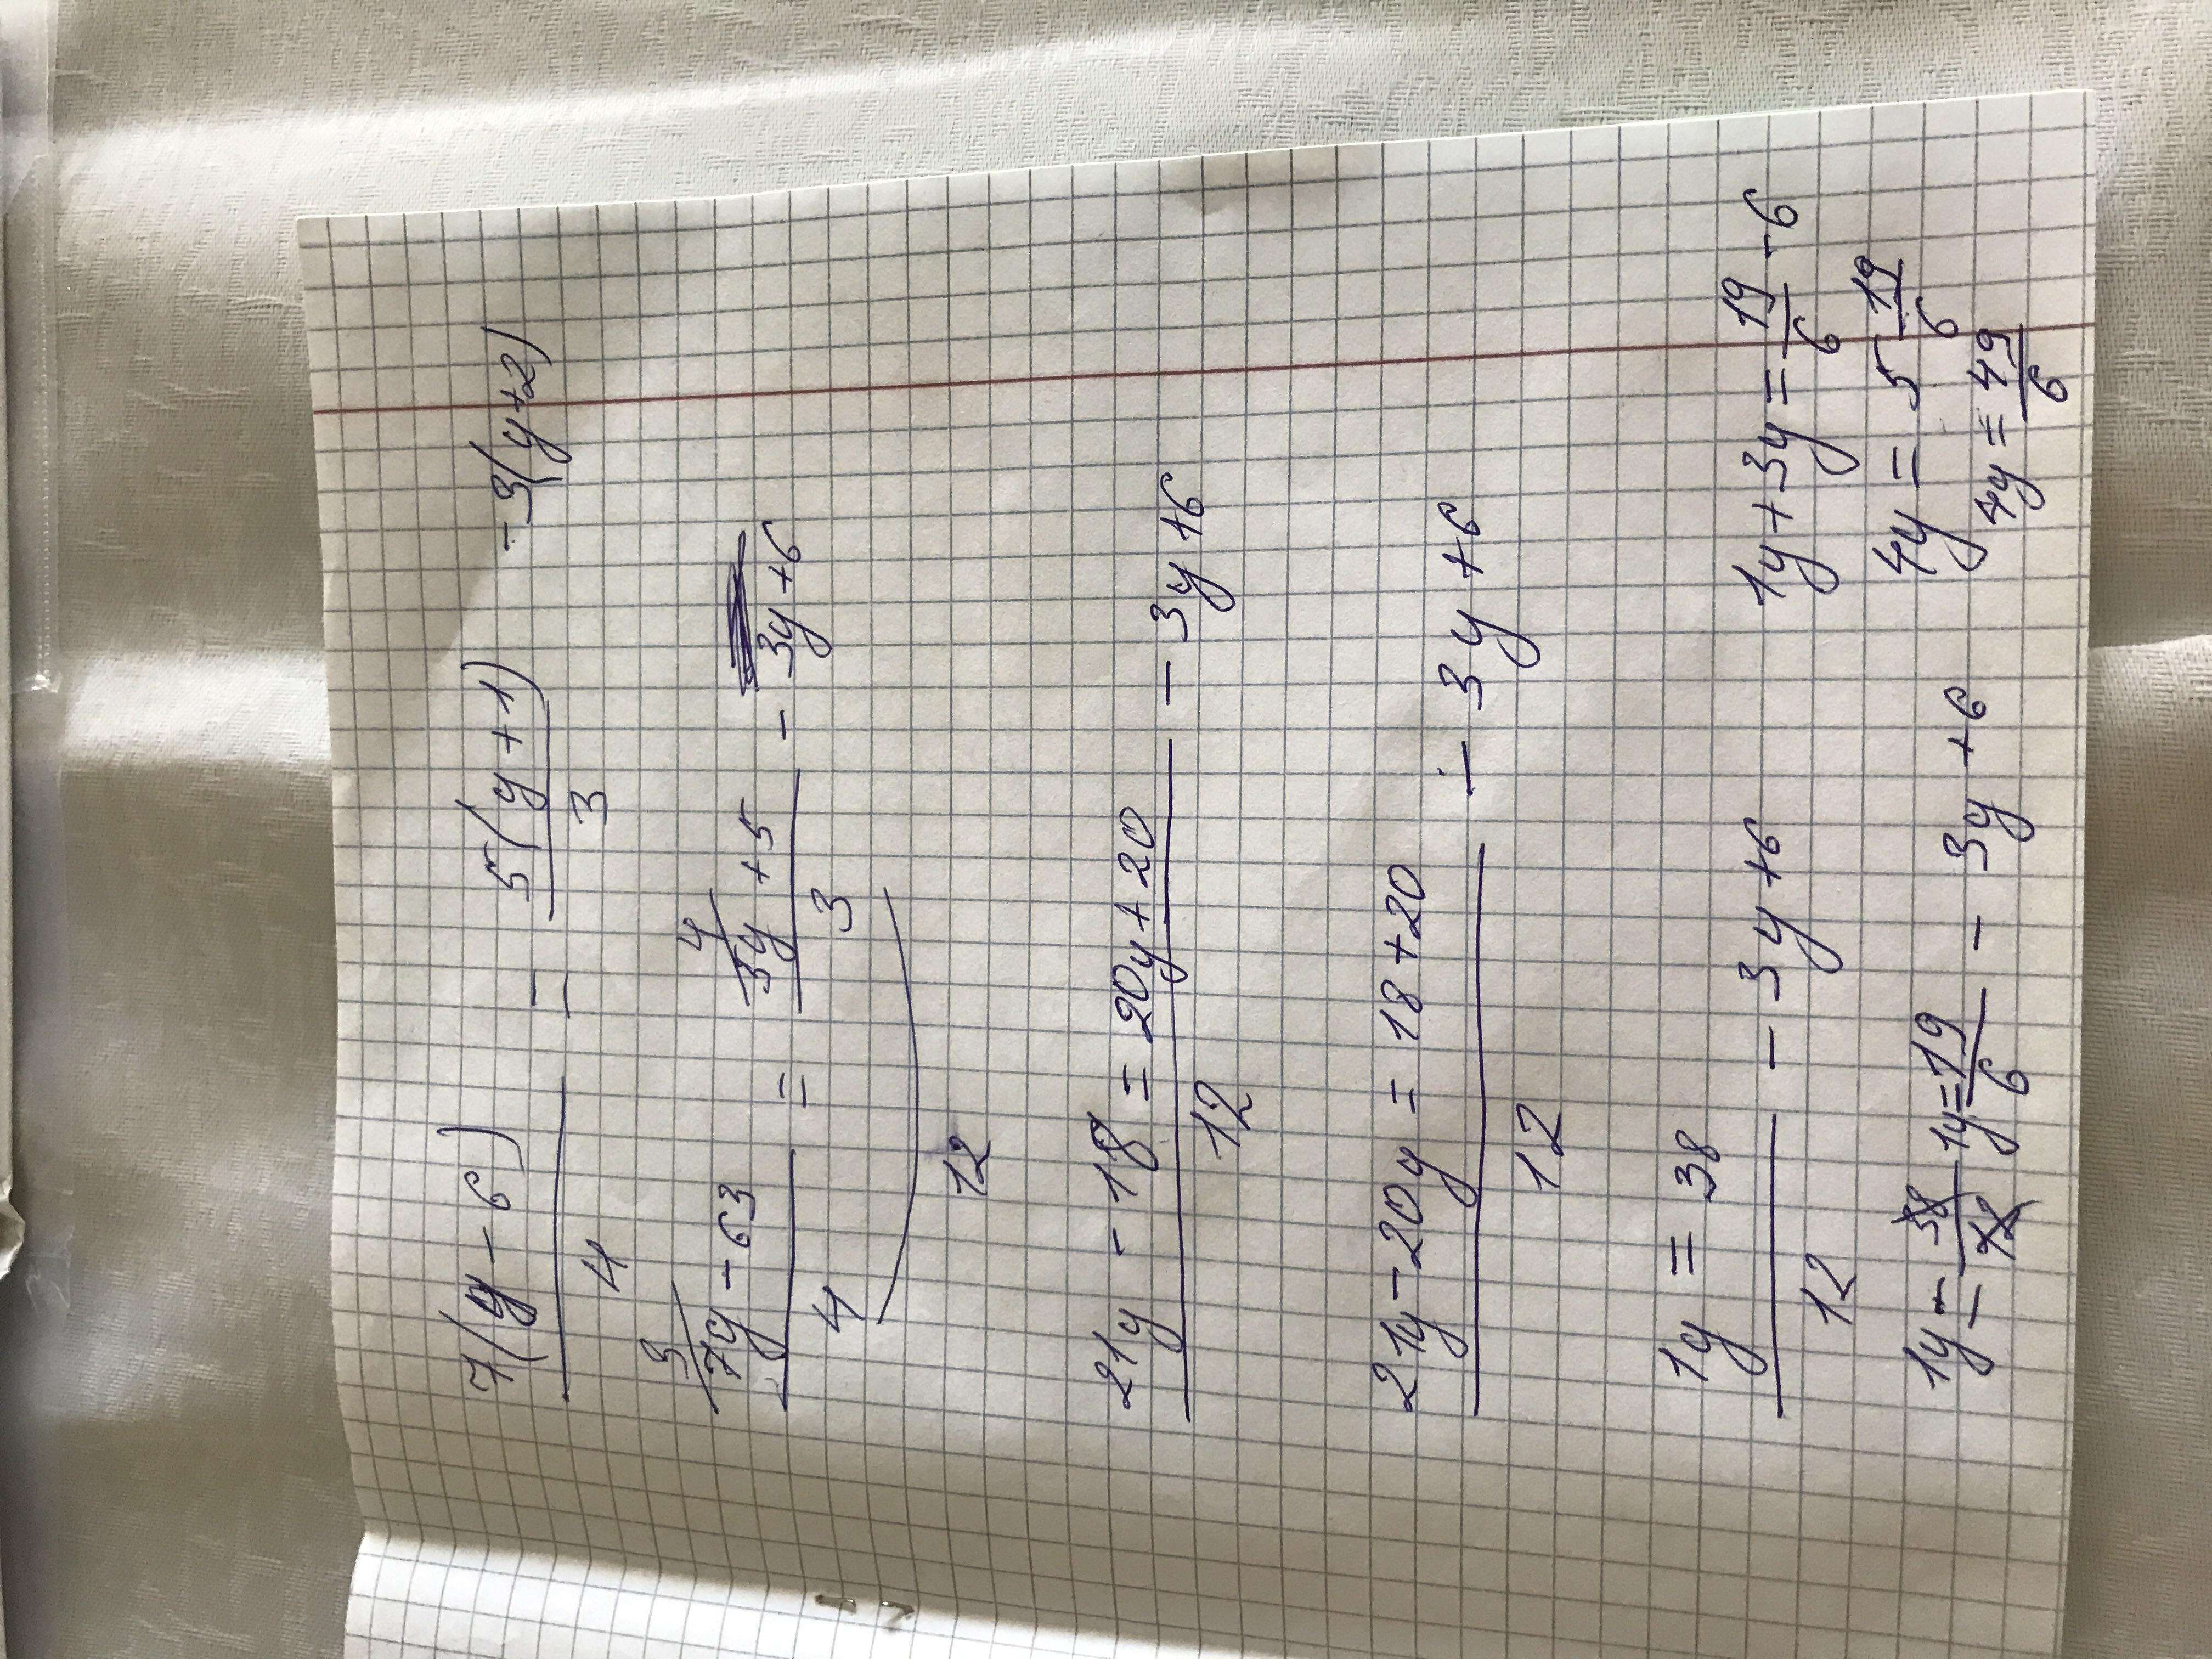 7(y-6)/4 = 5(y+1)/3 - 3(y+2)
3/ 7y-63/4 = 4/ 5y+5/3 - 3y+6
12
21y - 18 = 20y+20/12 - 3y+6
21y-20y = 18+20/12 - 3y+6
1y = 38/12 - 3y+6
1y = 38/12 1y=19/6 - 3y+6
1y+3y=19/6-6
4y = 5 19/6
4y = 49/6